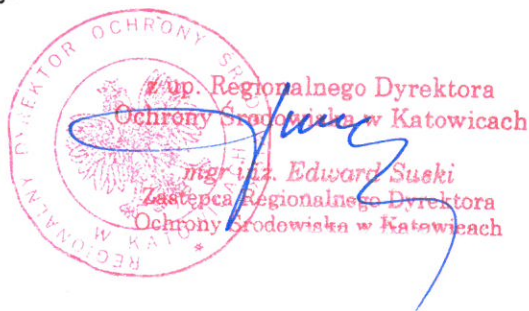 REGIONALNY DYREKTOR OCHRONY ŚRODOWISKA W KATOWICACH *
z up. Regionalnego Dyrektora
Ochrony Środowiska w Katowicach
mgr inż. Edward Suski
Zastępca Regionalnego Dyrektora
Ochrony Środowiska w Katowicach